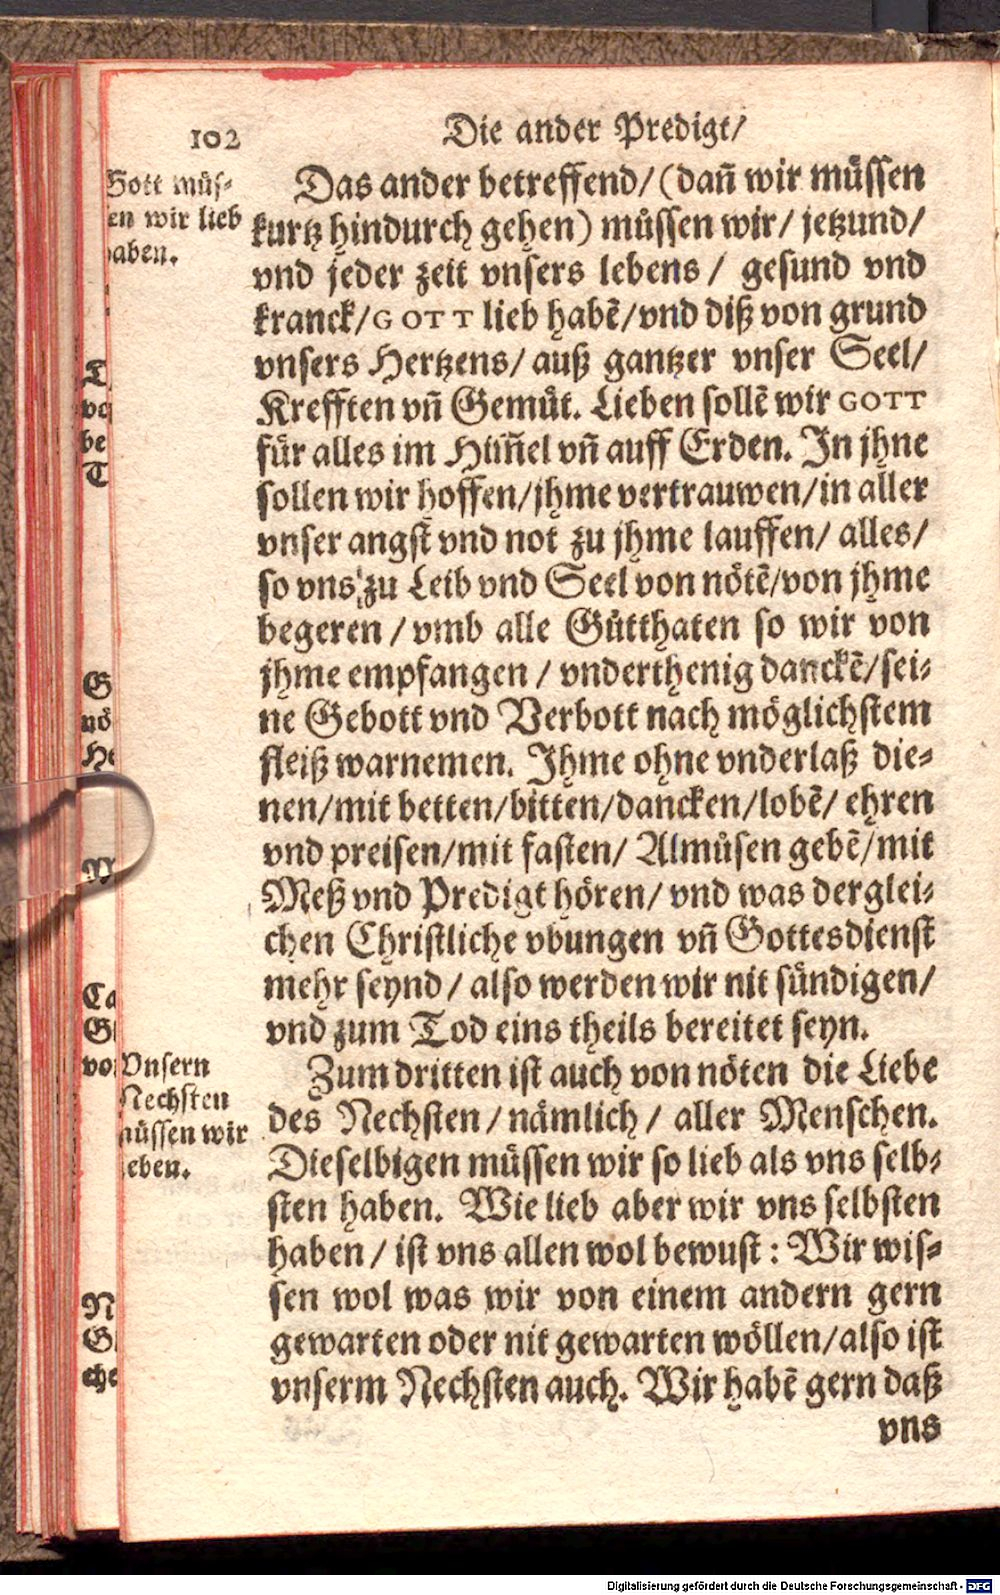 102
Die ander Predigt/
Gott müs-
sen wir lieb
haben.
Das ander betreffend/ (dañ wir müssen
kurtz hindurch gehen) müssen wir/ jetzund/
vnd jeder zeit vnsers lebens/ gesund vnd
kranck/ GOTT lieb habē/ vnd diß von grund
vnsers Hertzens/ auß gantzer vnser Seel/
Krefften vñ Gemüt. Lieben sollē wir GOTT
für alles im Him̃el vñ auff Erden. In jhne
sollen wir hoffen/ jhme vertrauwen/ in aller
vnser angst vnd not zu jhme lauffen/ alles/
so vns zu Leib vnd Seel von nötē/ von jhme
begeren/ vmb alle Gütthaten so wir von
jhme empfangen/ vnderthenig danckē/ sei-
ne Gebott vnd Verbott nach möglichstem
fleiß warnemen. Ihme ohne vnderlaß die-
nen/ mit betten/ bitten/ dancken/ lobē/ ehren
vnd preisen/ mit fasten/ Almůsen gebē/ mit
Meß vnd Predigt hören/ vnd was derglei-
chen Christliche vbungen vñ Gottesdienst
mehr seynd/ also werden wir nit sündigen/
vnd zum Tod eins theils bereitet seyn.
Vnsern
Nechsten
müssen wir
lieben.
Zum dritten ist auch von nöten die Liebe
des Nechsten/ nämlich/ aller Menschen.
Dieselbigen müssen wir so lieb als vns selb-
sten haben. Wie lieb aber wir vns selbsten
haben/ ist vns allen wol bewust: Wir wis-
sen wol was wir von einem andern gern
gewarten oder nit gewarten wöllen/ also ist
vnserm Nechsten auch. Wir habē gern daß
vns
Digitalisierung gefördert durch die Deutsche Forschungsgemeinschaft - DFG